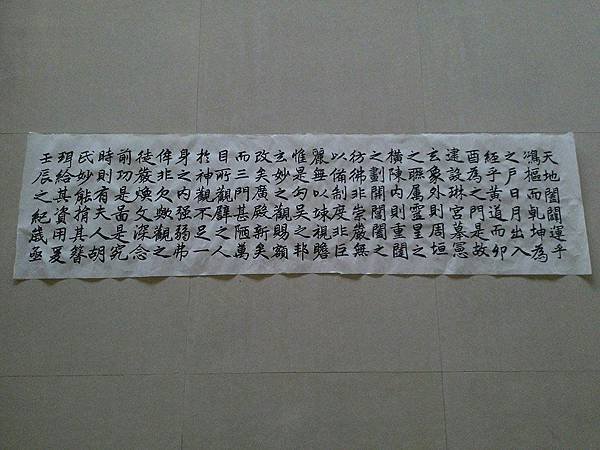 天地闔闢運乎
鴻樞而乾坤為
之戶日月出入
經乎黃道而卯
酉為之門是故
建設琳宮摹憲
玄象外則周垣
之聯属靈星之
橫陳内則重闥
之劃開閶闔之
彷彿非崇嚴無
以備制度非巨
麗無以竦視瞻
惟是勾吳之邦
玄妙之觀賜額
改矣廣殿新矣
而三門甚陋萬
目所觀譬之人
於神觀不足一
身之内强弱弗
侔非欠歟觀之
徒嚴煥文深念
前功是啚是究
時則有夫人胡
氏妙能捐其簪
珥給其資用夏
壬辰之紀歲亟